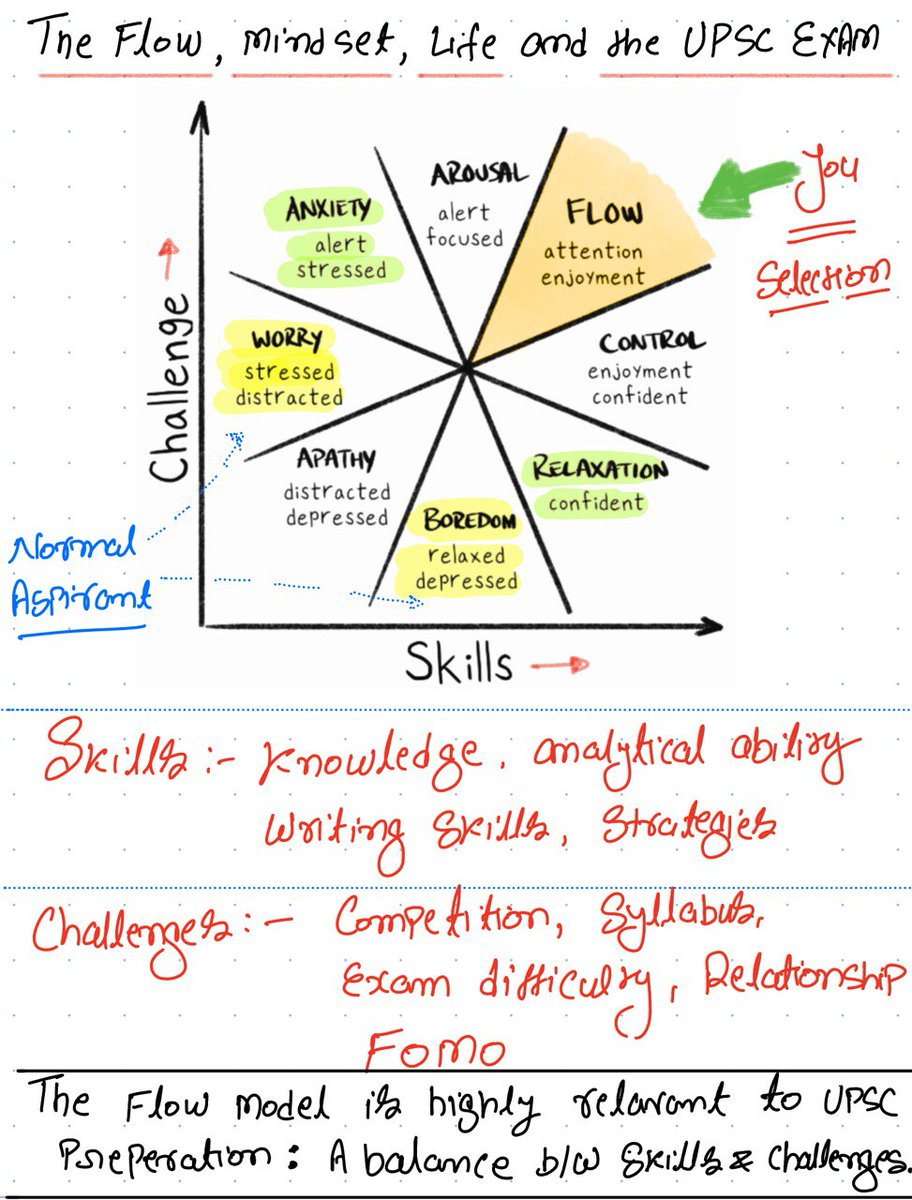 The Flow, Mindset, Life and the UPSC EXAM
AROUSAL
alert
focused
ANXIETY
alert
stressed
FLOW
attention
enjoyment
You
Selection
WORRY
stressed
distracted
CONTROL
enjoyment
confident
Challenge
APATHY
distracted
depressed
RELAXATION
confident
BOREDOM
relaxed
depressed
Normal
Aspirant
Skills
Skills :- Knowledge, analytical ability
Writing Skills, Strategies
Challenges :- Competition, Syllabus,
Exam difficulty, Relationship
FOMO
The Flow Model is highly relavant to UPSC
Preperation : A balance b/w Skills & Challenges.